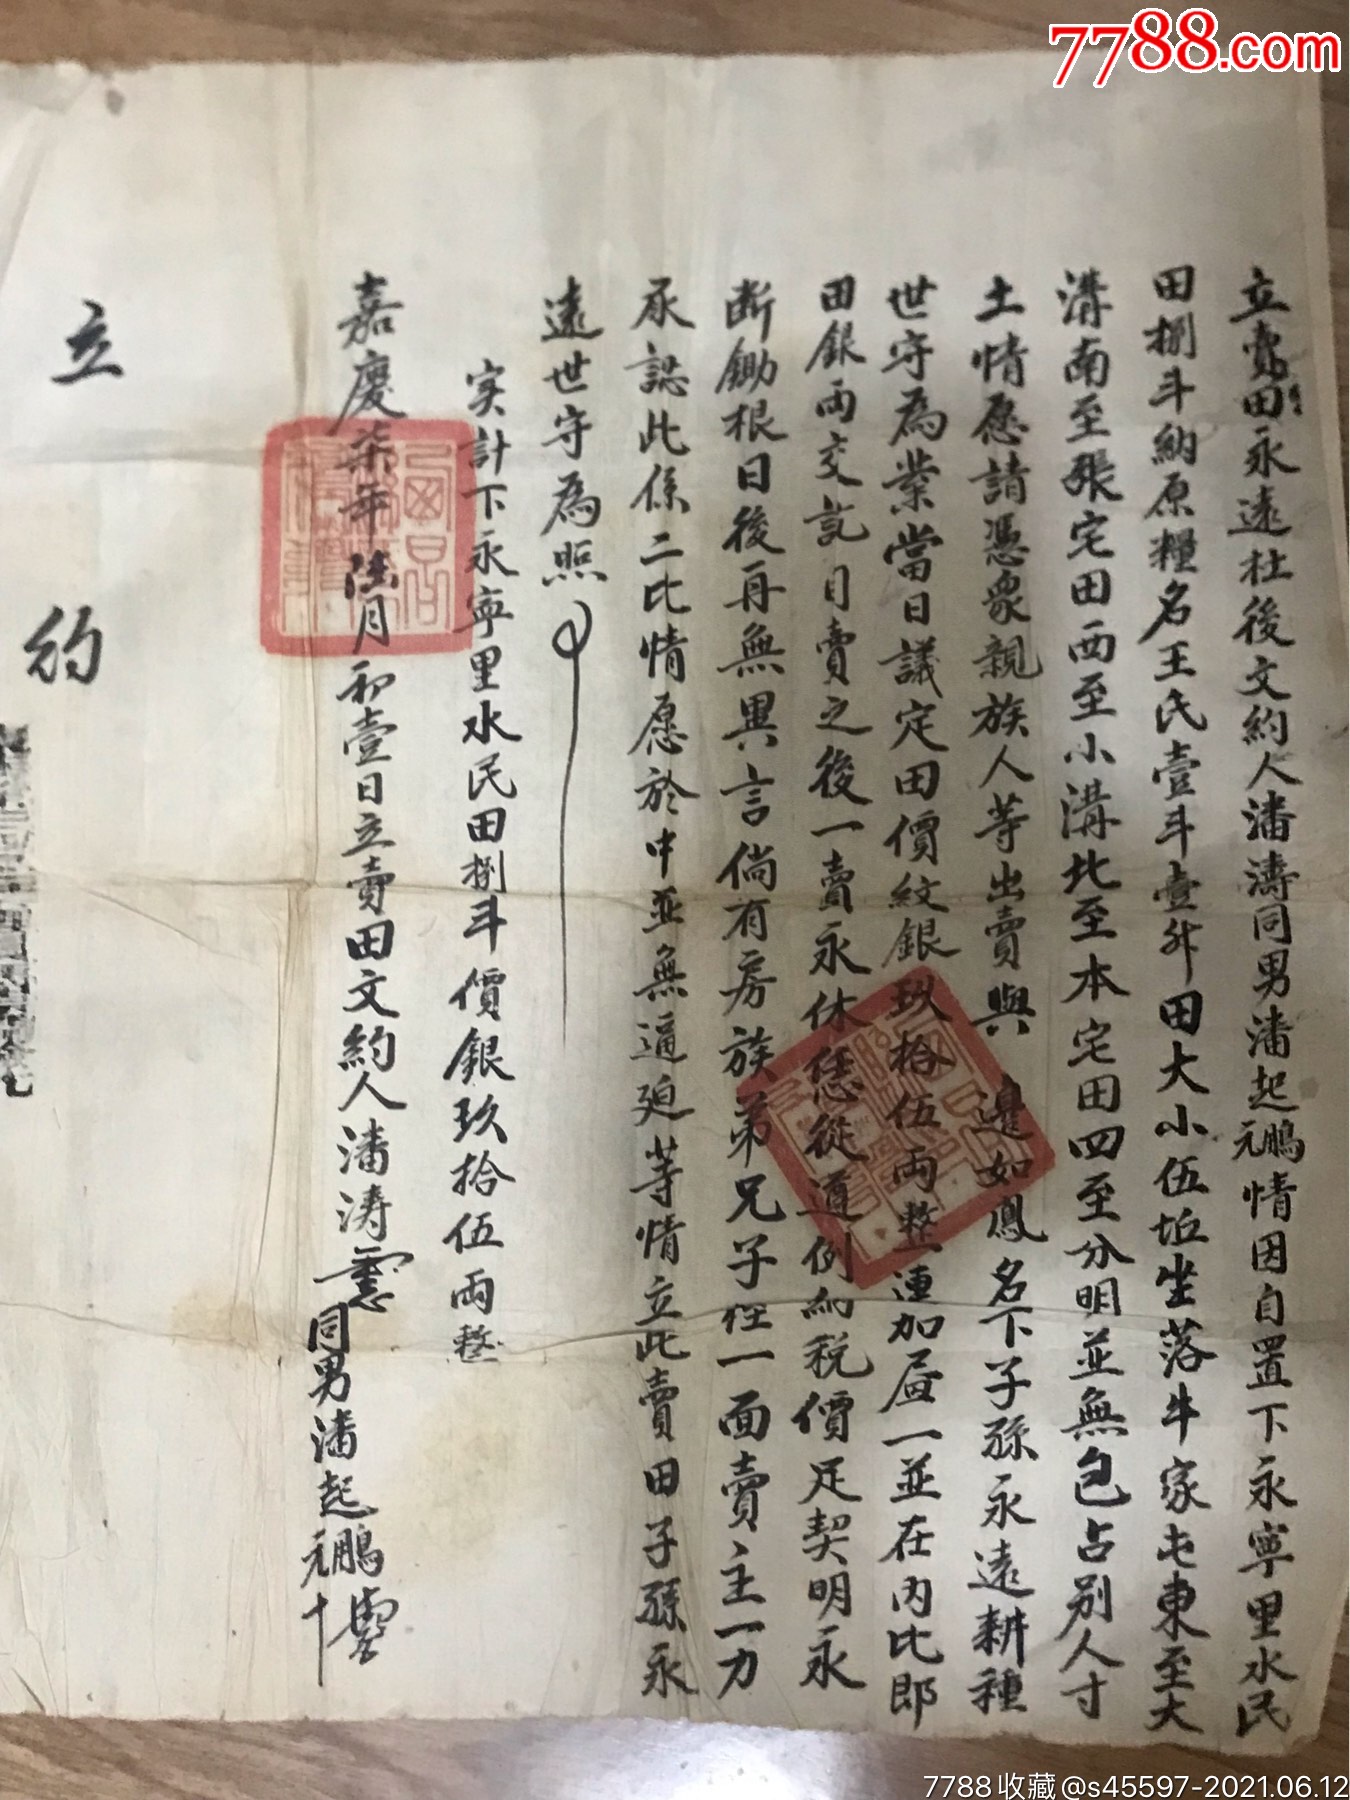 7788.com
立賣田永遠杜後文約人潘濤同男潘起鵬元情因自置下永寧里水民
田捌斗納原糧名王氏壹斗壹升田大小伍坵坐落牛家屯東至大
溝南至張宅田西至小溝北至本宅田四至分明並無包占別人寸
土情愿請憑衆親族人等出賣與 邊如鳳名下子孫永遠耕種
世守為業當日議定田價紋銀玖拾伍兩整連加一並在內比即
田銀兩交訖日賣之後一賣永休恁從遵例納稅價足契明永
断鋤根日後再無異言倘有房族弟兄子侄一面賣主一力
承認此係二比情愿於中並無逼迫等情立此賣田子孫永
遠世守為照
実計下永寧里水民田捌斗價銀玖拾伍兩整
嘉慶柒年陸月初壹日立賣田文約人潘涛 同男潘起鵬元十
立 約
7788收藏@s45597-2021.06.12